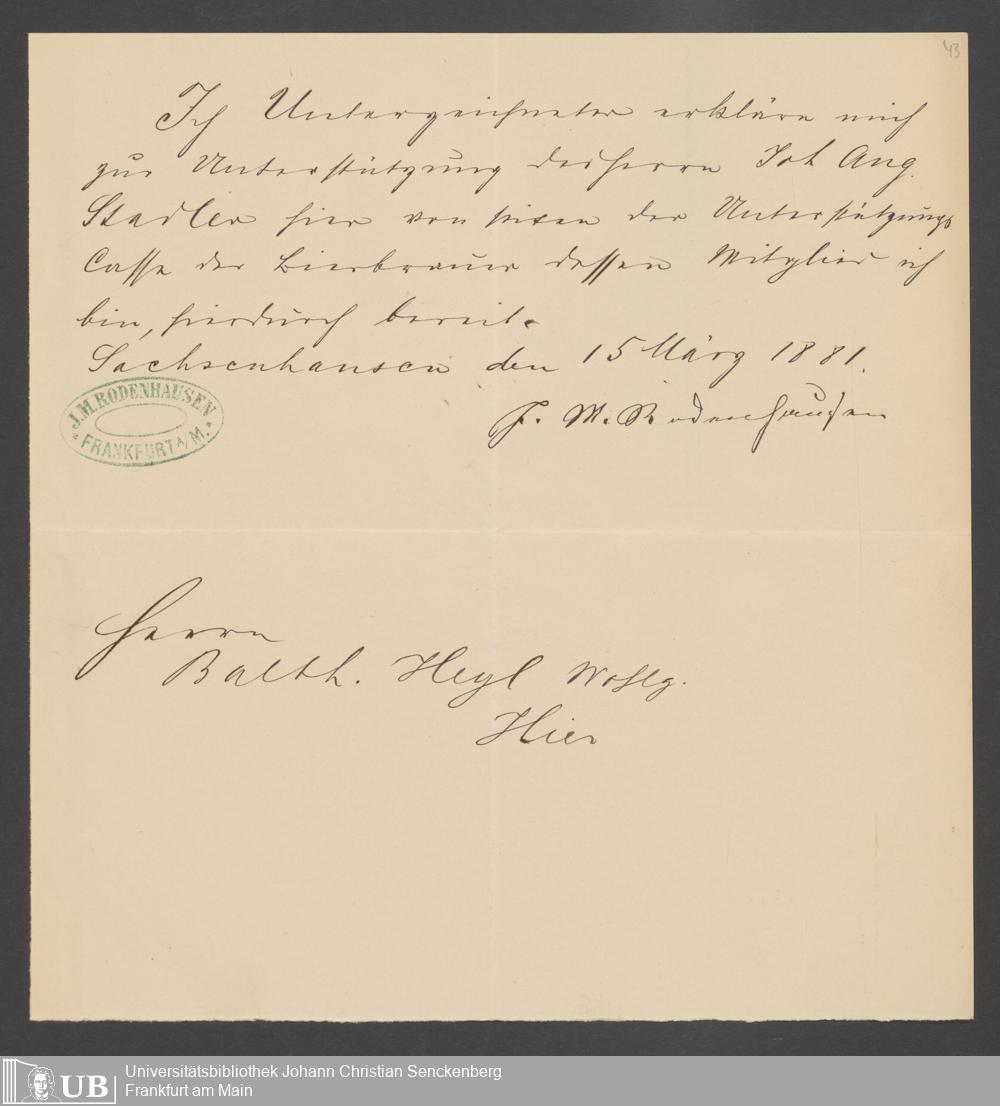 43
Ich Unterzeichneter erkläre mich
zur Unterstützung des Herrn Joh Aug.
Stadler hier von seiten der Unterstützungs
Casse der Bierbrauer dessen Mitglied ich
bin, hierdurch bereit.
Sachsenhausen den 15 März 1881.
J. M. Rodenhausen
J. M. RODENHAUSEN
* FRANKFURT A/M. *
Herrn
Balth. Heyl Wohlg.
Hier
UB
Universitätsbibliothek Johann Christian Senckenberg
Frankfurt am Main